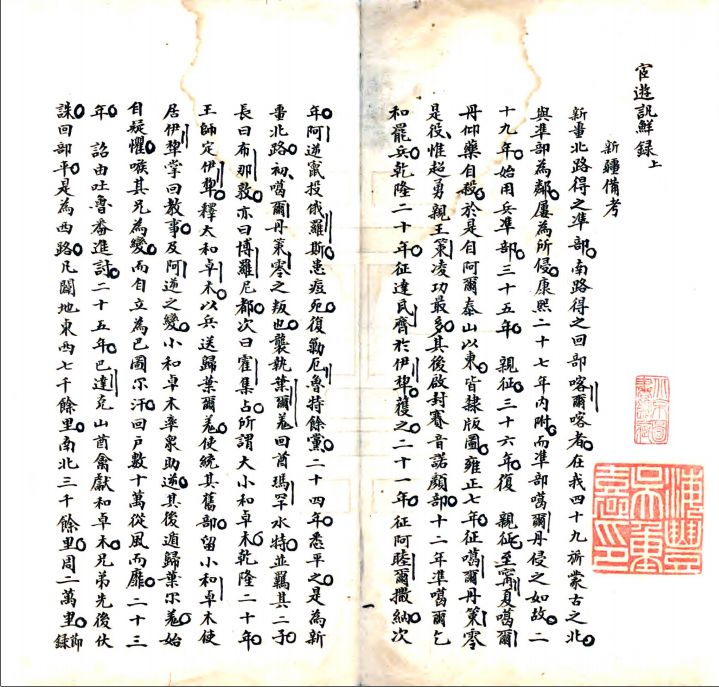 宦遊訊鮮錄上
新疆備考
新畺北路得之準部南路得之回部喀爾喀者在我四十九旂蒙古之北
與準部為鄰屢為所侵康熙二十七年內附而準部噶爾丹侵之如故二
十九年始用兵準部三十五年 親征三十六年復 親征至寧夏噶爾
丹仰藥自殺於是自阿爾泰山以東皆隸版圖雍正七年征噶爾丹策零
是役惟超勇親王策凌功最多其後啟封賽音諾顏部十二年準噶爾乞
和罷兵乾隆二十年征達瓦齊於伊犂獲之二十一年征阿睦爾撒納次
年阿逆竄投俄羅斯患痘死復勦厄魯特餘黨二十四年悉平之是為新
畺北路初噶爾丹策零之叛也襲執葉爾羌回酋瑪罕水特並羈其二子
長曰布那敦亦曰博羅尼都次曰霍集占所謂大小和卓木乾隆二十年
王師定伊犂釋大和卓木以兵送歸葉爾羌使統其舊部留小和卓木使
居伊犂掌回教事及阿逆之變小和卓木率眾助逆其後遁歸葉尔羌始
自疑懼嗾其兄為變而自立為巴圖尔汗回戶數十萬從風而靡二十三
年 詔由吐魯番進討二十五年巴達克山酋禽獻和卓木兄弟先後伏
誅回部平是為西路凡闢地東西七千餘里南北三千餘里周二萬里 節錄
海豐吳重憙印